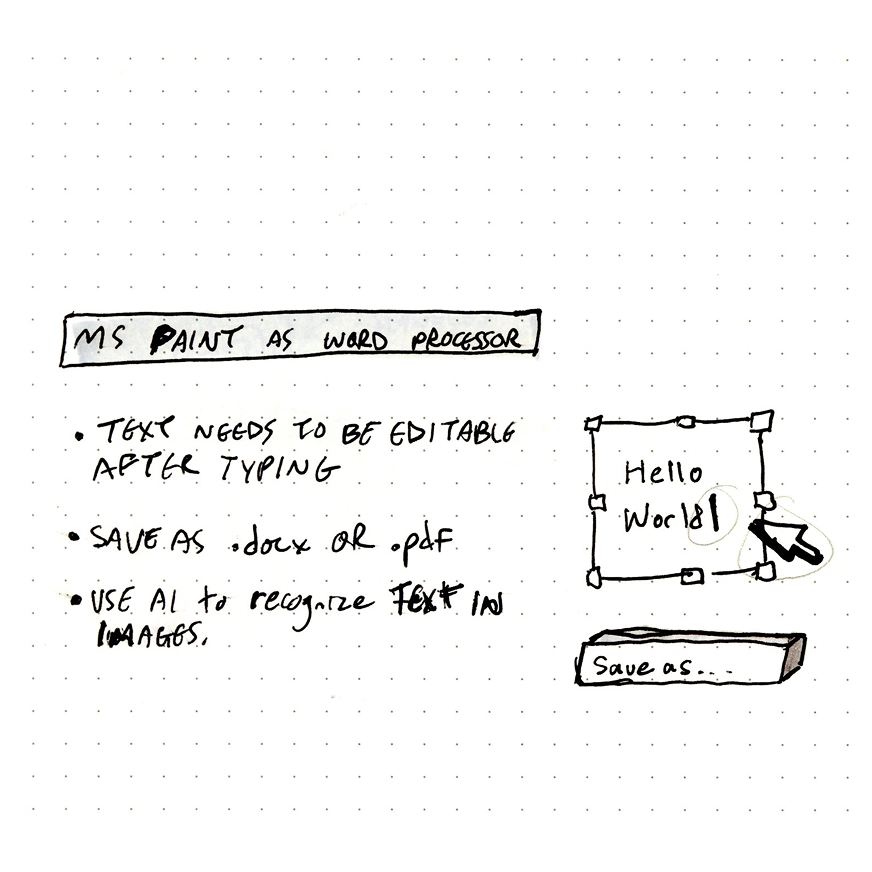 MS PAINT AS WORD PROCESSOR
• TEXT NEEDS TO BE EDITABLE
AFTER TYPING
• SAVE AS .docx OR .pdf
• USE AI to recognize TEXT IN
IMAGES.
Hello
World
Save as...